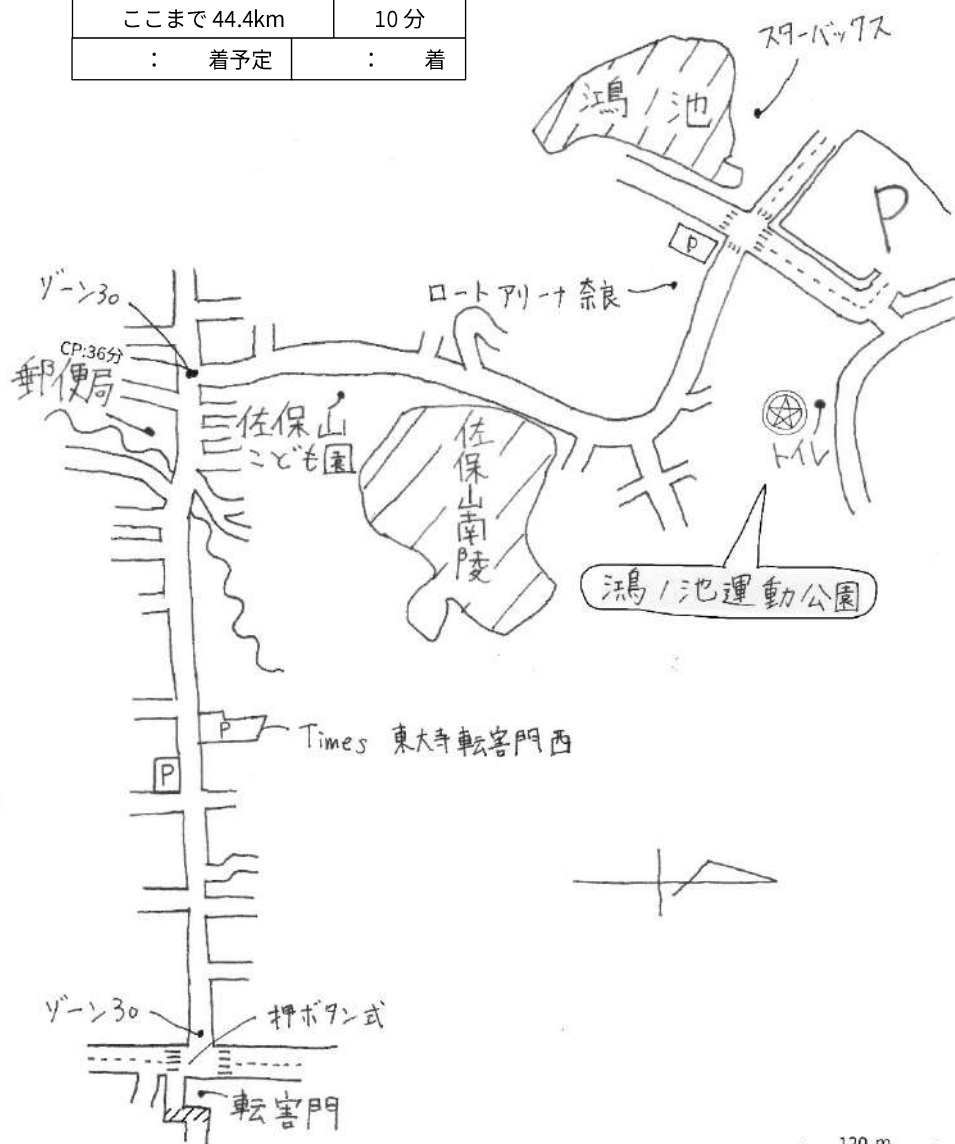 ここまで 44.4km 10 分
： 着予定 ： 着
スターバックス
鴻ノ池
P
P
ゾーン30
ロートアリーナ奈良
CP:36分
郵便局
佐保山
こども園
佐保山南陵
トイレ
鴻ノ池運動公園
P
Times 東大寺転害門西
P
ゾーン30
押ボタン式
転害門